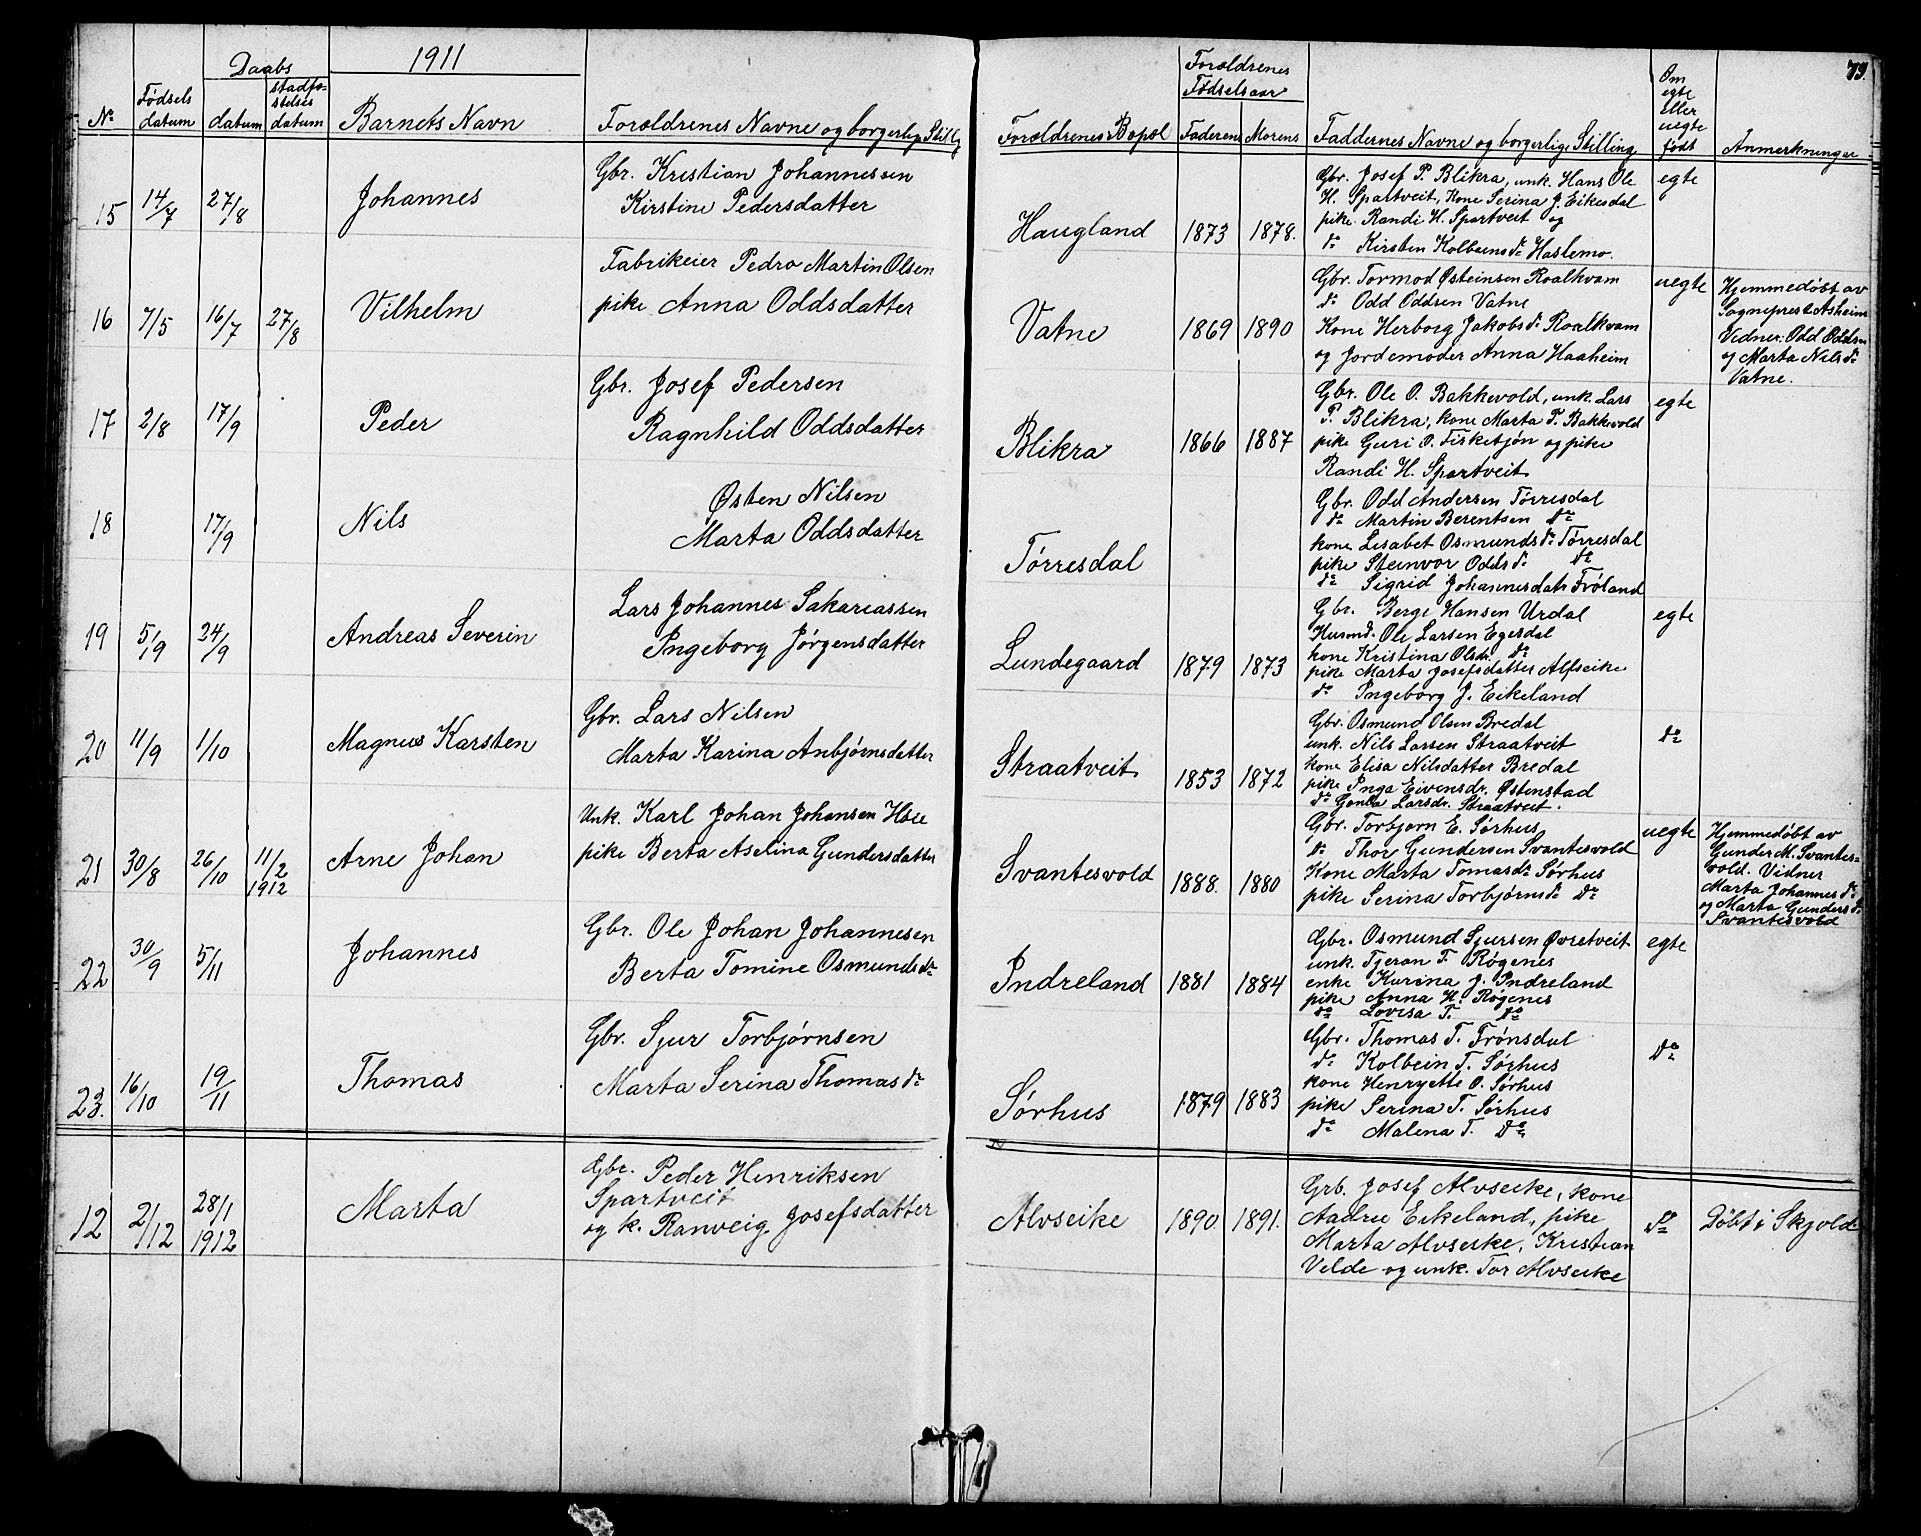 1911
73.
Daabs
Forældrenes
Fødselsaar
Nr Fødsels datum datum stadfæstelses datum Barnets Navn Forældrenes Navne og borgerlig Stillg Forældrenes Bopæl Faderens Morens Faddernes Navne og borgerlige Stilling Om egte eller uegte født Anmerkninger
15 14/7 27/8 Johannes
Gbr. Kristian Johannessen
Kirstine Pedersdatter
Haugland 1873 1878.
Gbr. Josef P. Blikra, unk. Hans Ole
H. Spartveit, Kone Serina J. Eikesdal
pike Randi H. Spartveit og
do Kirsten Kolbeensdr Haslemo.
egte
16 7/5 16/7 27/8 Vilhelm
Fabrikeier Pedro Martin Olsen
pike Anna Oddsdatter
Vatne 1869 1890
Gbr. Tormod Østeinsen Roalkvam
do Odd Oddsen Vatne
Kone Herborg Jakobsdr Roalkvam
og Jordemoder Anna Haaheim
uegte
Hjemmedøbt av
Sogneprest Asheim
Vedner: Odd Oddsen
og Marta Nilsdr
Vatne.
17 2/8 17/9 Peder
Gbr. Josef Pedersen
Ragnhild Oddsdatter
Blikra 1866 1887
Gbr. Ole O. Bakkevold, unk. Lars
P. Blikra, kone Marta T. Bakkevold
pike Guri O. Fisketjøn og pike
Randi H. Spartveit
egte
18 17/9 Nils
Østen Nilsen
Marta Oddsdatter
Tørresdal
Gbr. Odd Andersen Tørresdal
do Martin Berentsen do
kone Lisabet Osmundsdr Tørresdal
pike Steinvor Oddsdr do
do Sigrid Johannesdatr Frøland
19 5/9 24/9 Andreas Severin
Lars Johannes Sakariassen
Ingeborg Jørgensdatter
Lundegaard 1879 1873
Gbr. Berge Hansen Urdal
Husmd. Ole Larsen Egesdal
kone Kristina Olsdr do
pike Marta Josefsdatter Alfseike
do Ingeborg J. Eikeland
egte
20 11/9 1/10 Magnus Karsten
Gbr. Lars Nilsen
Marta Karina Anbjørnsdatter
Straatveit 1853 1872
Gbr. Osmund Olsen Bredal
unk. Nils Larsen Straatveit
kone Elisa Nilsdatter Bredal
pike Inga Eivensdr. Østenstad
do Larsdr. Straatveit.
do
21 30/8 26/10 11/2 1912 Arne Johan
Unk. Karl Johan Johansen
pike Berta Aselina Gundersdatter
Svantesvold 1888. 1880
Gbr. Torbjørn E. Sørhus
do Thor Gundersen Svantesvold
Kone Marta Tomasdr Sørhus
pike Serina Torbjørnsdr do
uegte
Hjemmedøbt av
Gunder M. Svantes=
vold. Vidner
Marta Johannesdr
og Marta Gundersdr
Svantesvold
22 30/9 5/11 Johannes
Gbr. Ole Johan Johannesen
Berta Tomine Osmundsdr
Indreland 1881 1884
Gbr. Osmund Sjursen Øvretveit
unk. Tjeran T. Røgenes
enke Karina J. Indreland
pike Anna H. Røgenes
do Lovisa T. do
egte
23. 16/10 19/11 Thomas
Gbr. Sjur Torbjørnsen
Marta Serina Thomasdr
Sørhus 1879 1883
Gbr. Thomas T. Frønsdal
do Kolbein T. Sørhus
kone Henryette O. Sørhus
pike Serina T. Sørhus
do Malena T. do
do
12 2/12 28/1 1912 Marta
Gbr. Peder Henriksen
Spartveit
og k. Ranveig Josefsdatter
Alvseike 1890. 1891.
Grb. Josef Alvseike, kone
Aadne Eikeland, pike
Marta Alvseike, Kristian
Velde og unk. Tor Alvseike
do
Døbt i Skjold